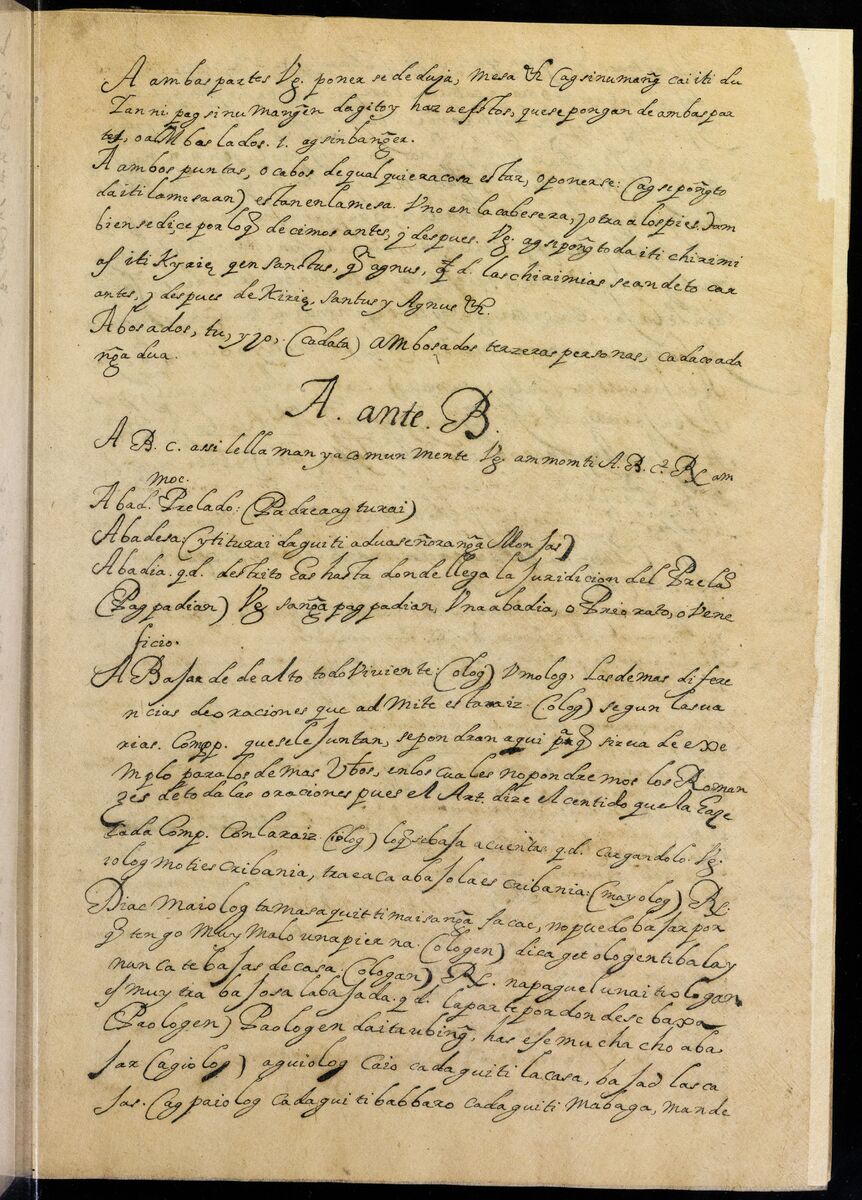 A ambas partes Vg. ponerse de duja, mesa &c. (ag sinumang̃ caiti du
Tanni pag sinu mang̃en dagitoy haz aestos, que se pongan de ambas par
tes, o ambas lados. l. agsinbang̃er.
A ambos puntas, o cabos de qualquiera cosa estar, o ponerse: (ag sepong̃to
daiti lamisaan) estan en la mesa. Vno en la cabesera, y otra a los pies, Tam
bien se dice por loq̃ decimos antes, y despues. Vg. ag sepong̃to da iti chirimi
as iti Kyrie, qen sanctus, qñ agnus, q. d. las chirimias se an de to car
antes, y despues de Kirie, Santus y Agnus &c.
A bos ados, tu, y yo, (Cadata) ambos ados terzeras personas, cadacoada
ng̃a dua.
A. ante. B.
A B. c. assi le llaman ya comunmente Vg. ammomti A. B. c? R. am
moc.
Abad. Prelado: (Padre a ag turai)
Abadesa: (yti turai daguiti adua señora ng̃a Monjas)
Abadia. q. d. destrito Eas hasta donde llega la Juridicion del Prelaº
(Pag padian) Vg. sang̃a pag padian, Vna abadia, o Priorato, o Vene
ficio.
A Bajar de de alto todo Viviente: (olog) Vmolog, Las demas difere
ncias de oraciones que ad mite esta raiz (olog) segun las ua
rias. Compp. que se le Juntan, se pondran aqui pª q̃ sirua de exe
mplo para los demas Vbos, en los cuales no pondremos los Roman
zes de todas las oraciones pues el Art. dize el centido que da Ea
Tada Comp. Con la raiz (iolog) loq̃ se baja a cuentas q. d. cargandolo. Vg.
iolog moti escribania, trae aca abajo la escribania: (mayolog) R.
Diac maiolog ta masaquit ti maisang̃a sacac, no puedo bajar por
q̃ tengo muy malo una pierna. (ologen) dica get ologen ti balay
nunca te bajas de casa (ologan) R. napaguel unai ti ologan
es muy tra bajosa la bajada. q. d. la parte por donde se baxa
(Paologen) Paologen daita ubing̃, has ese muchacho aba
jar (agiolog) aguiolog caio cadaguiti la casa, bajad las ca
jas. (ag paiolog cadaguiti babbaro cadaguiti mabaga, mande